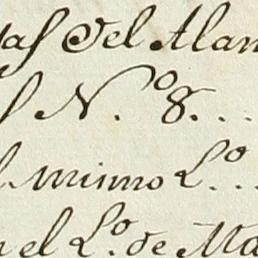 del Alam
N.º 8. . . .
mismo L.º . .
el L.º de Ma